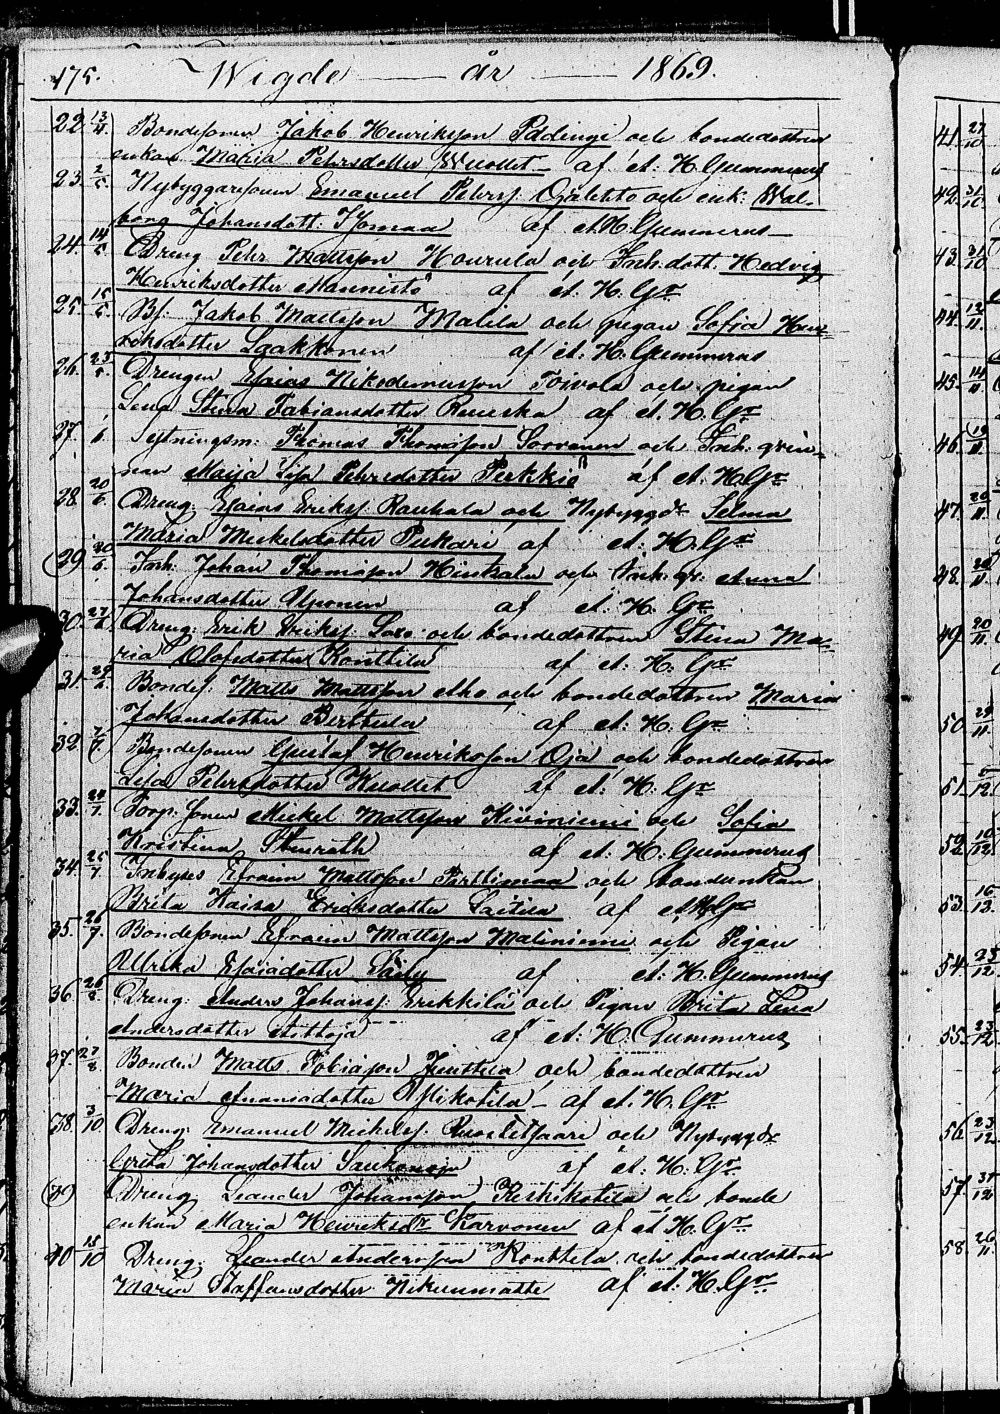 175. Wigde år 1869.
22. 13/4 Bondesonen Jakob Henriksson Pddingi och bondedottren
enkan Maria Pehrsdotter Wuollet af A. H. Gummerus
23. 2/5 Nybyggaresonen Emanuel Pehrss. Ojalehto och enk: Wal-
borg Johansdott: af A. H. Gummerus
24. 14/5 Dreng Pehr Mattsson Hourula och Inh. dott. Hedvig
Henriksdotter Mannistö af A: H: Gr
25. 15/5 Bs: Jakob Mattsson Malila och pigan Sofja Hen-
riksdotter Laakkonen af A: H. Gummerus
26. 23/5 Drengen Esaias Nikodemusson Toivola och pigan
Lena Stina Fabiansdotter af A. H. Gr
27. Sytningsm: Thomas Thomasson Sorvanen och Inh. qvin-
nan Maija Lisa Pehrsdotter Perkkiö af A. H. Gr
28. 20/6 Dreng: Esaias Erikss. Rauhala och Nybyggdr Selma
Maria Mickelsdotter Pukari af A: H. Gr
29. 20/6 Inh: Johan Thomasson Hinkala och Inh: qv: Anna
Johansdotter Uponen af A: H. Gr
30. 27/6 Dreng: Erik Erikss. Saxo och bondedottren Stina Ma-
ria Olofsdotter Konttila af A: H. Gr
31. 29/6 Bondes: Matts Mattsson Aho och bondedottren Maria
Johansdotter Berttula af A: H: Gr
32. Bondesonen Gustaf Henriksson Oja och bondedottren
Lisa Pehrsdotter Kuollet af A: H: Gr
33. 24/7 Torp: sonen Mickel Mattsson Kiviniemi och Sofia
Kristina Stenroth af A: H. Gummerus
34. 25/7 Inhyses Efraim Mattsson Parttimaa och bondenkan
Brita Kaisa Eriksdotter Laitila af A. H. Gr
35. 26/7 Bondesonen Efraim Mattsson Malinieni och Pigan
Ulrika Esaiadotter Säily af A: H. Gummerus
36. 26/8 Dreng: Anders Johanss: Erikkilä och Pigan Brita Lena
Andersdotter Aittoja af A: H. Gummerus
37. 27/8 Bonden Matts Tobiasson Junttila och bondedottren
Maria Ananiadotter af A. H. Gr
38. 3/10 Dreng: Emanuel Mickelss. Ruostetsaari och Nybyggdr
Greta Johansdotter Saukonoja af A: H: Gr
39 Dreng Leander Johansson Keskikotila och bonde
enkan Maria Henriksdr Karvonen af A: H. Gr.
40 15/10 Dreng: Leander Andersson Konttila och bondedottren
Maria Staffansdotter Nikunmatte af A: H. Gr.
41. 27/10
42. 31/10
43. 31/10
44. 12/11
45. 14/11
46. 19/11
47. 20/11
48. 20/11
49. 20/11
50. 28/11
51. /12
52. 10/12
53. 16/12
54. 23/12
55. 23/12
56. 23/12
57. 31/12
58. 26/11